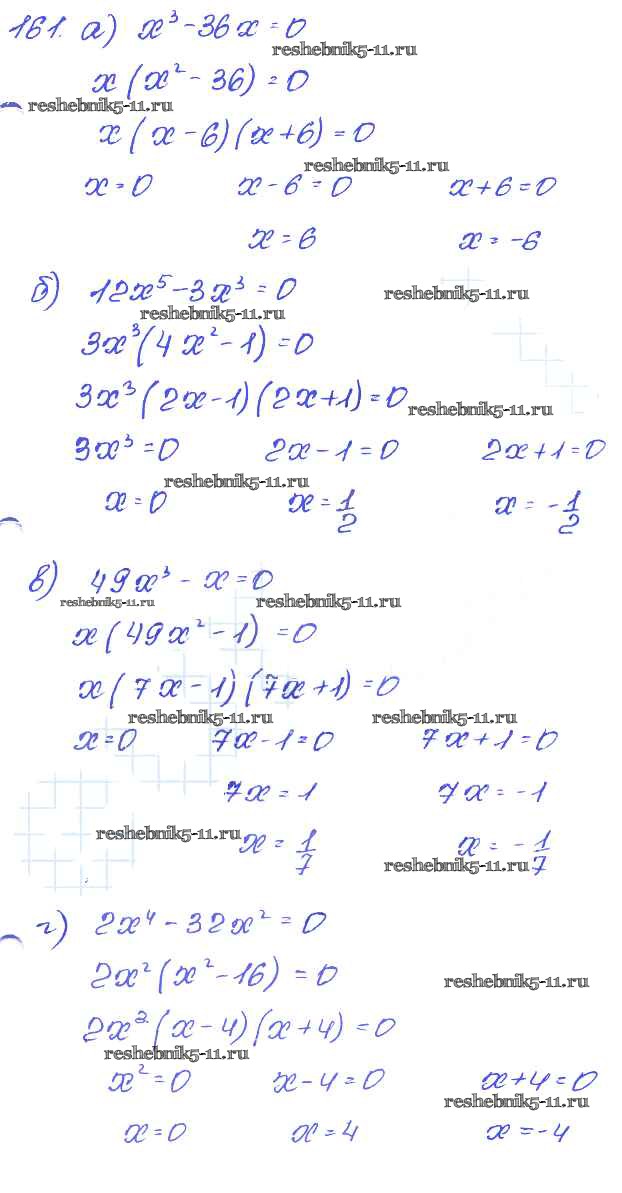 161. а) x³ - 36x = 0
reshebnik5-11.ru
x (x² - 36) = 0
reshebnik5-11.ru
x (x - 6)(x + 6) = 0
reshebnik5-11.ru
x = 0 x - 6 = 0 x + 6 = 0
x = 6 x = -6
б) 12x⁵ - 3x³ = 0 reshebnik5-11.ru
reshebnik5-11.ru
3x³(4x² - 1) = 0
3x³(2x - 1)(2x + 1) = 0
reshebnik5-11.ru
3x³ = 0 2x - 1 = 0 2x + 1 = 0
reshebnik5-11.ru
x = 0 x = 1/2 x = -1/2
в) 49x³ - x = 0
reshebnik5-11.ru reshebnik5-11.ru
x (49x² - 1) = 0
x (7x - 1)(7x + 1) = 0
reshebnik5-11.ru reshebnik5-11.ru
x = 0 7x - 1 = 0 7x + 1 = 0
7x = 1 7x = -1
reshebnik5-11.ru x = 1/7 x = -1/7
reshebnik5-11.ru
г) 2x⁴ - 32x² = 0
2x² (x² - 16) = 0 reshebnik5-11.ru
2x² (x - 4)(x + 4) = 0
reshebnik5-11.ru
x² = 0 x - 4 = 0 x + 4 = 0
reshebnik5-11.ru
x = 0 x = 4 x = -4